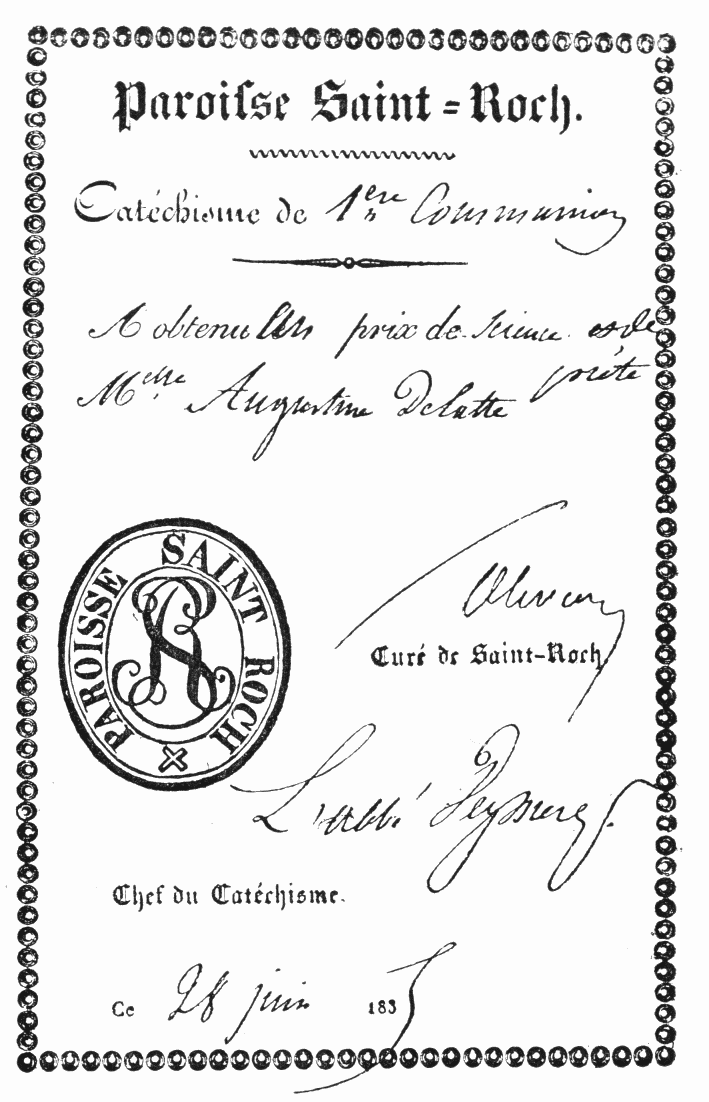 Paroisse Saint-Roch.
Catéchisme de 1ère Communion
A obtenu les prix de science et de
piété
Melle Augustine Delatte
PAROISSE SAINT ROCH
SR
Olivier
Curé de Saint-Roch
L'abbé
Chef du Catéchisme.
Ce 28 juin 1835